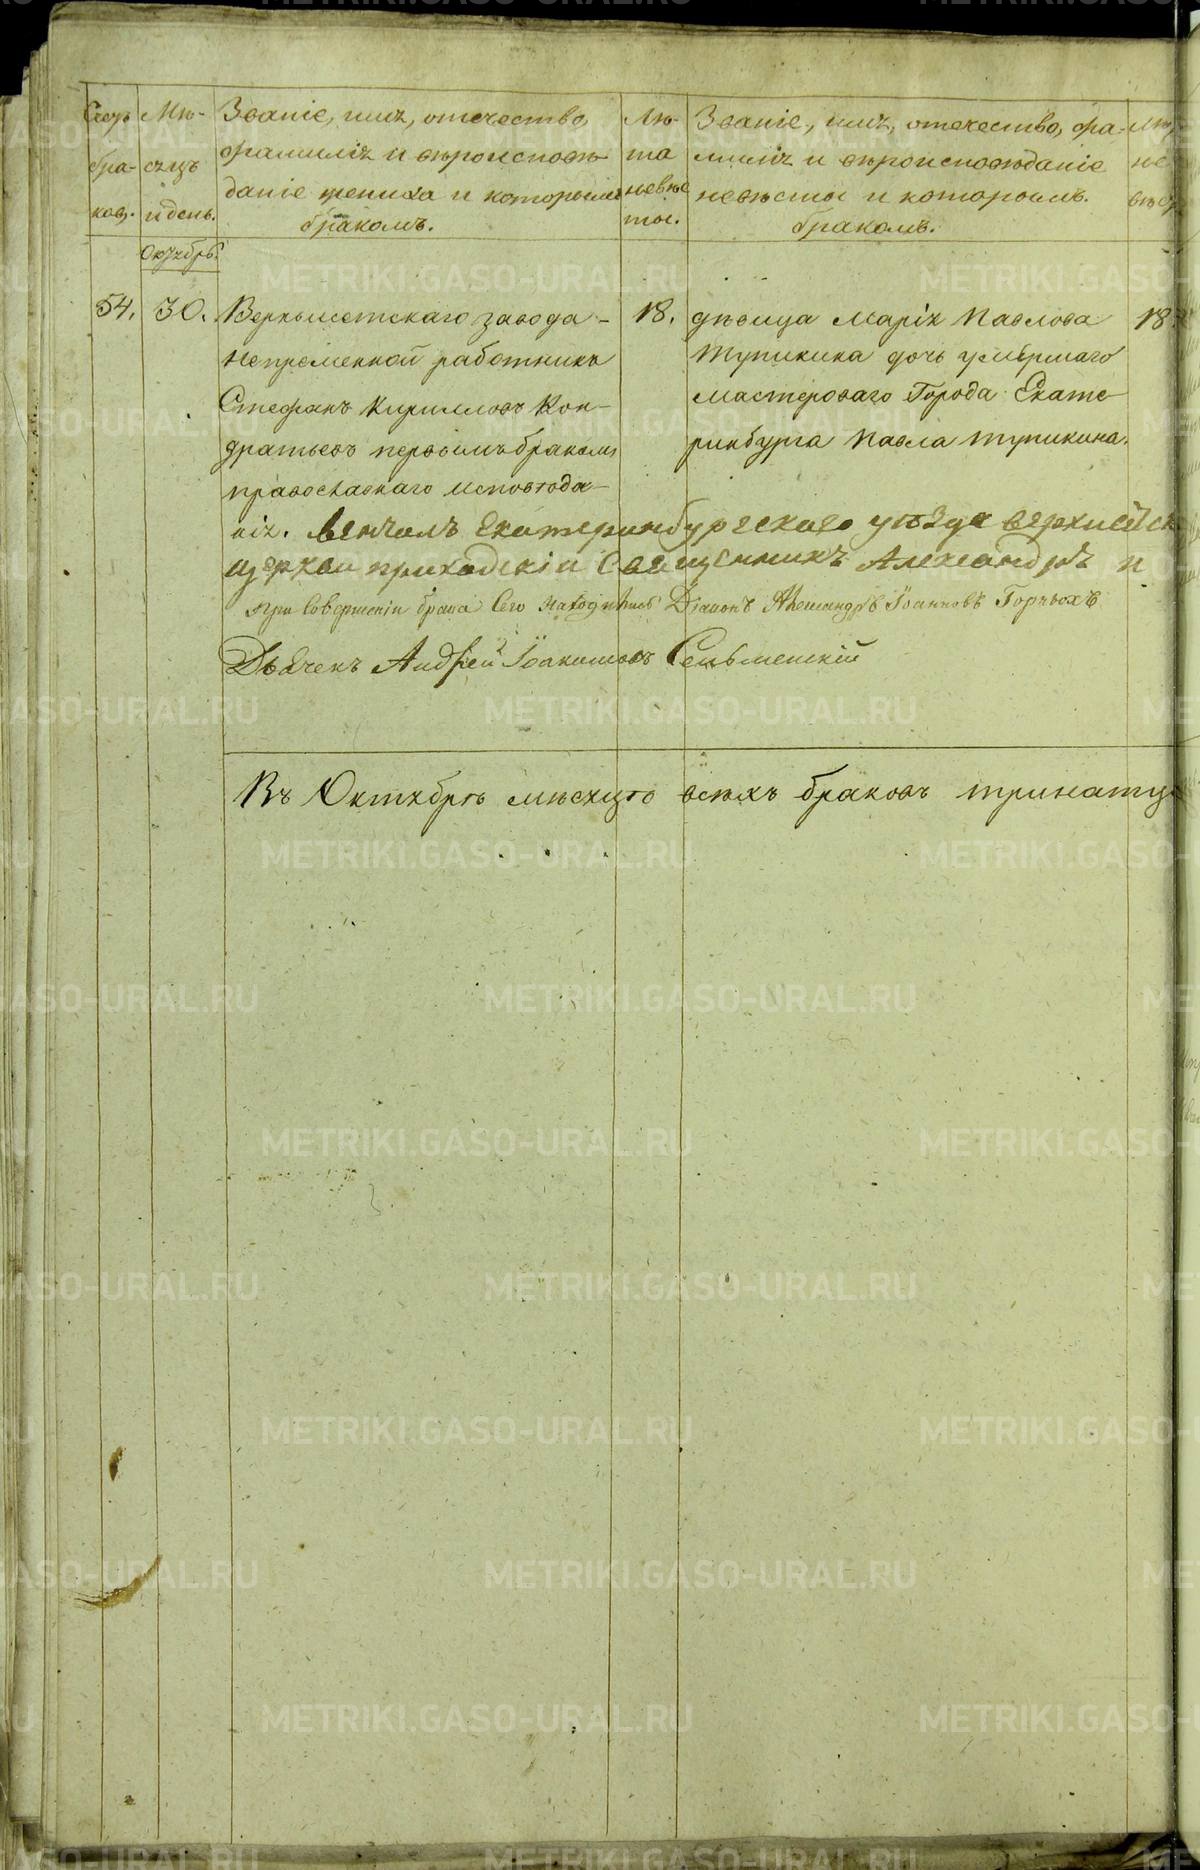 Счетъ браковъ.
Мѣсяцъ и день.
Званіе, имя, отечество,
фамилія и вѣроисповѣ-
даніе жениха и которымъ
бракомъ.
Лѣ-
та
невѣс
ты.
Званіе, имя, отечество, фа-
милія и вѣроисповѣданіе
невѣсты и которымъ.
бракомъ.
Октябрь.
54.
30.
Верхъисетскаго завода
непременной работникъ
Стефанъ Кирилловъ Кон-
дратьевъ первымъ бракомъ
православнаго исповѣда-
нія.
18.
дѣвица Марія Павлова
Тупикина дочь умершаго
мастероваго Города Екате-
ринбурга Павла Тупикина.
18
Венчалъ Екатеринбургскаго уѣзда Верхисетск
церкви приходскій Священникъ Александръ
При Совершеніи брака Сего находились Діаконъ Александръ Іоанновъ
Дьячекъ Андрей Іоакимовъ Сельменскій
Въ Октябрѣ мѣсяцѣ всѣхъ браковъ тринатц
METRIKI.GASO-URAL.RU